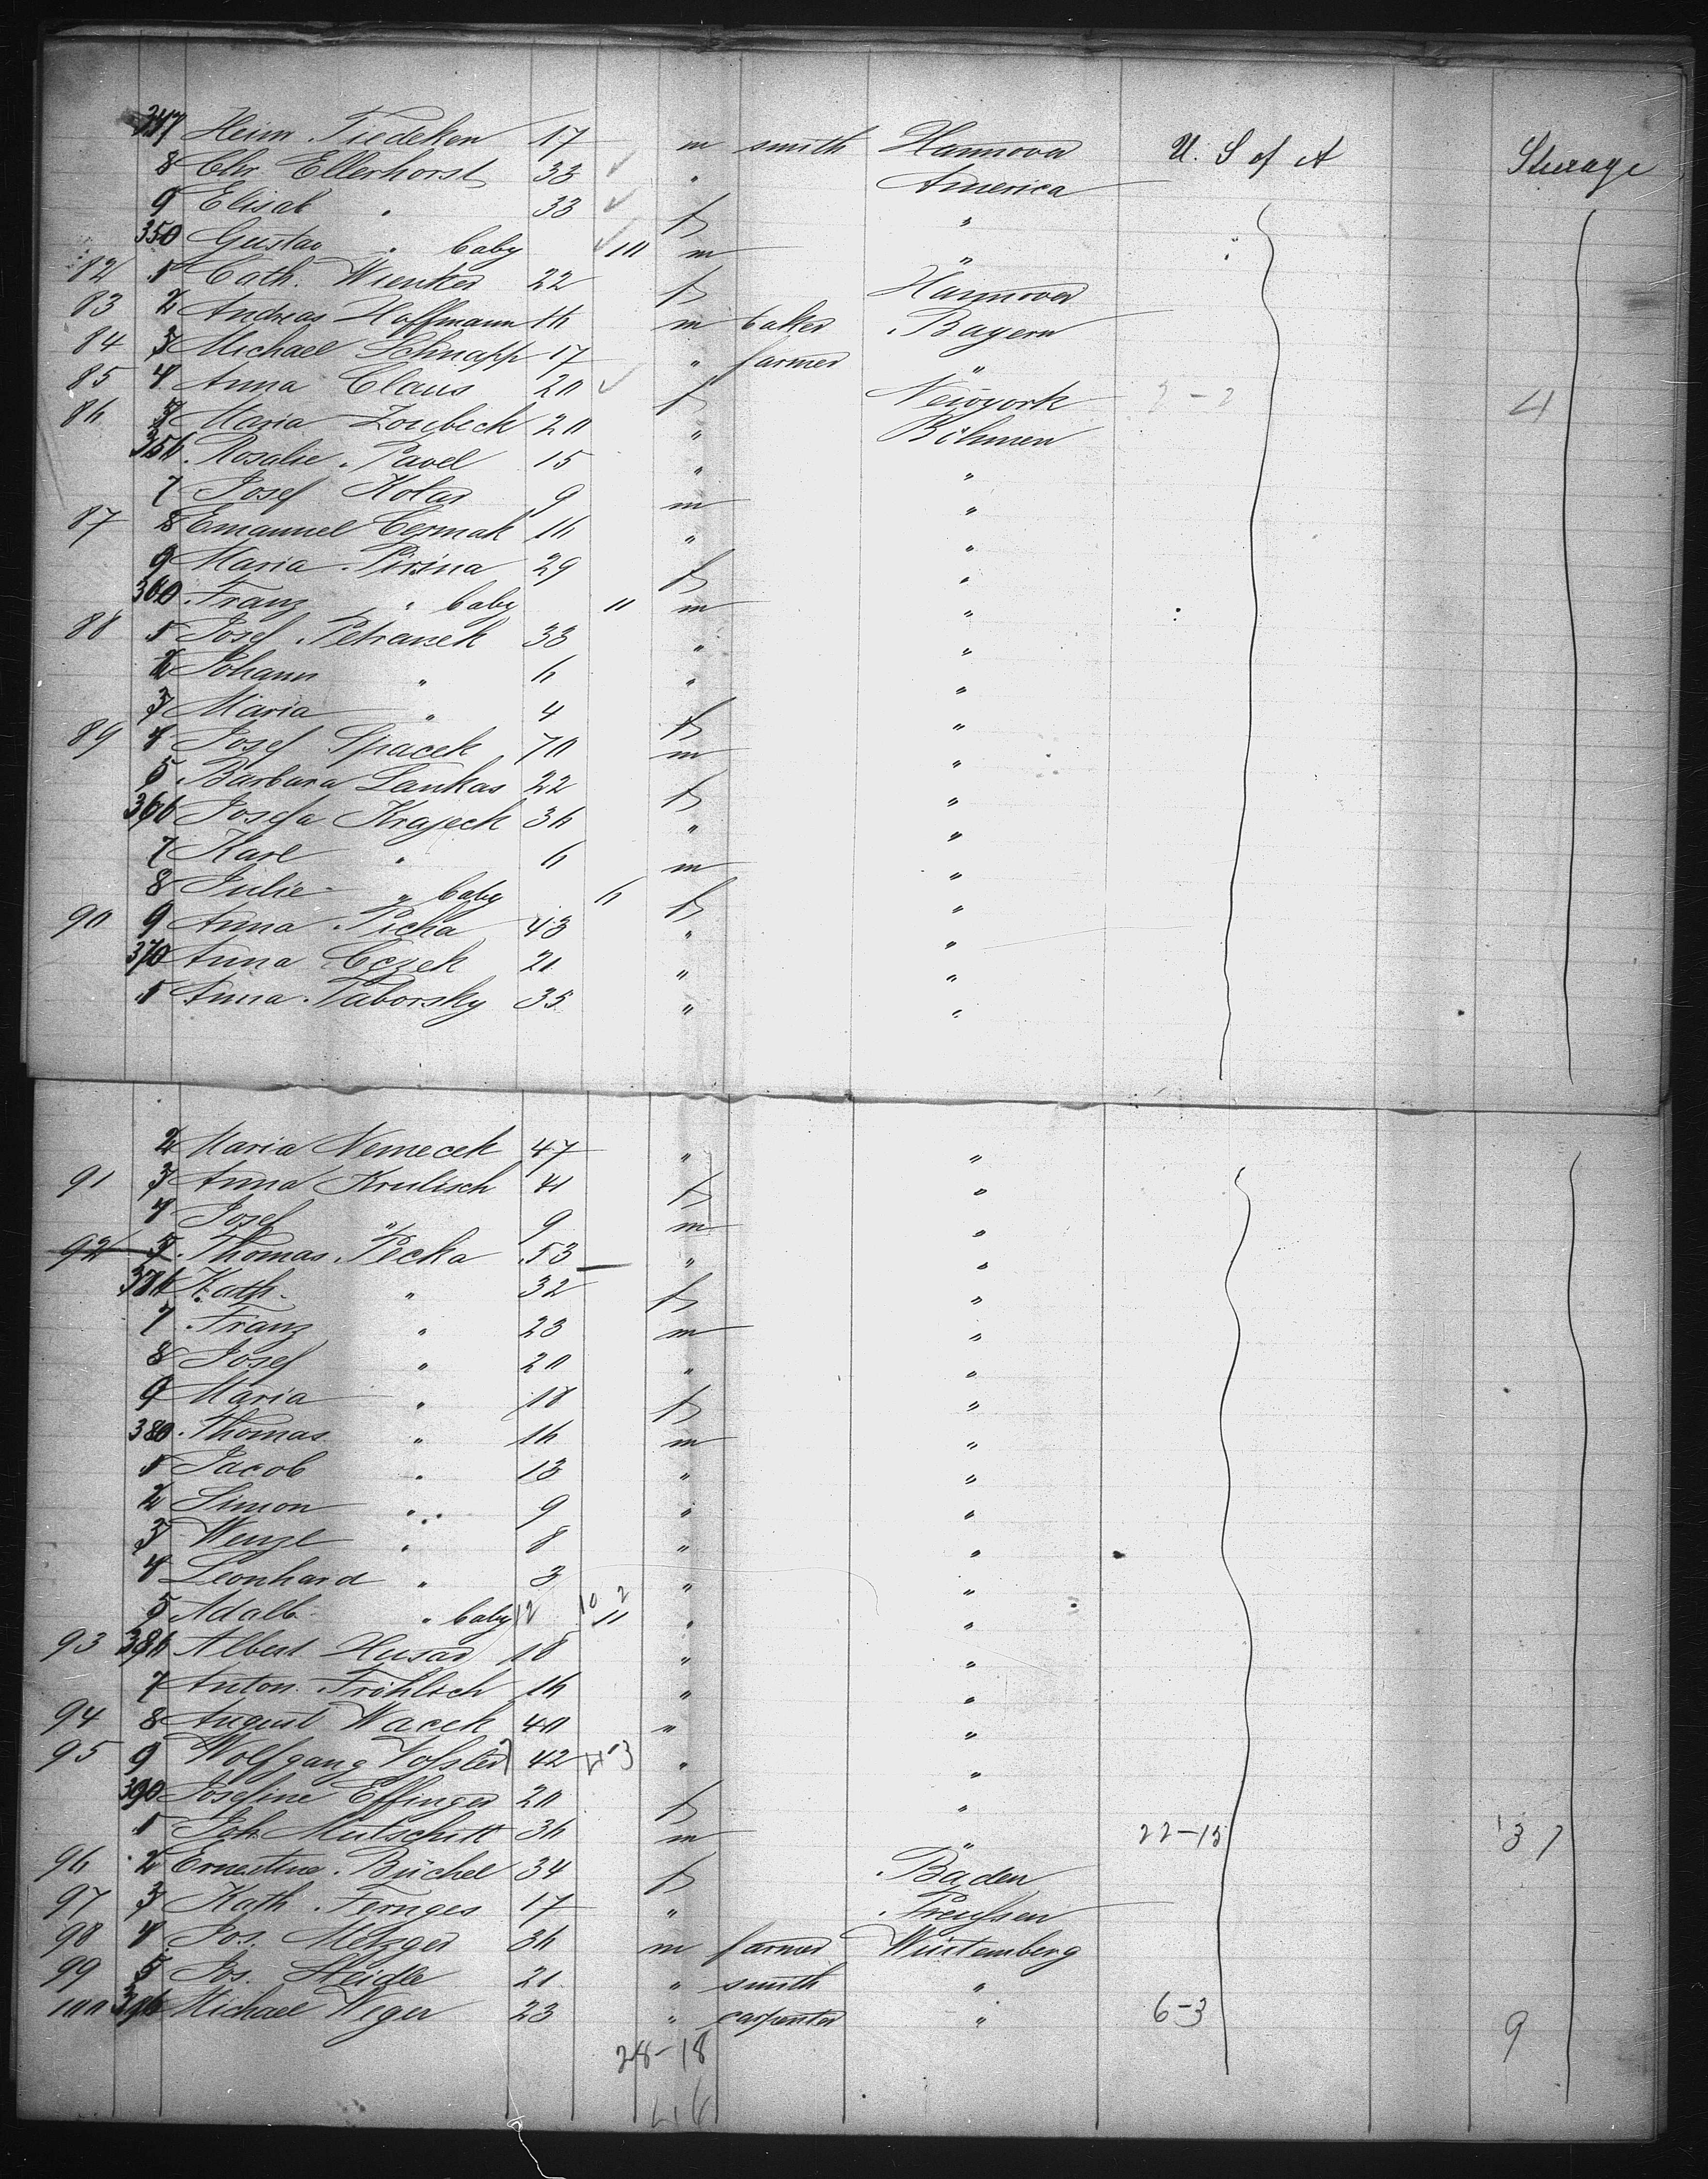 347 Heinr. Tiedeken 17 m smith Hannover U. S of A Sterage
8 Chr Ellerhorst 33 " America
9 Elisab " 33 f "
350 Gustav " baby 10 m "
82 1 Cath. Wienker 22 f Hannover
83 2 Andreas Hoffmann 16 m baker Bayern
84 3 Michael Schnapp 17 " farmer "
85 4 Anna Claus 20 f Newyork 2-2 4
86 5 Maria Zoubeck 20 " Böhmen
356 Rosalie Pavel 15 " "
7 Josef Kolar 9 m "
87 8 Emanuel Cermak 16 " "
9 Maria Pirina 29 f "
360 Franz " baby 11 m "
88 1 Josef Petranek 33 " "
2 Johann " 6 " "
3 Maria " 4 f "
89 4 Josef Spacek 70 m "
5 Barbara Lankas 22 f "
366 Josefa Krajeck 36 " "
7 Karl " 6 m "
8 Julie " baby 6 f "
90 9 Anna Picha 43 " "
370 Anna Cczek 21 " "
1 Anna Taborsky 35 " "
2 Maria Nemecek 47 " "
91 3 Anna Krulisch 41 f "
4 Josef " 9 m "
92 5 Thomas Pecka 53 " "
376 Kath. " 32 f "
7 Franz " 23 m "
8 Josef " 20 " "
9 Maria " 18 f "
380 Thomas " 16 m "
1 Jacob " 13 " "
2 Simon " 9 " "
3 Wenzl " 8 " "
4 Leonhard " 3 " "
5 Adalb. " baby 12 10 2 11 " "
93 386 Albert Husar 18 " "
7 Anton Fröhlich 16 " "
94 8 August Wacek 40 " "
95 9 Wolfgang 42 " "
390 Josefine Effinger 20 f "
1 Joh. Mutschitt 36 m " 22-15 37
96 2 Ernestine Büchel 34 f Baden
97 3 Kath. Fernges 17 " Preußen
98 4 Jos. Metzger 36 m farmer Würtemberg
99 5 Jos. Heidle 21 " smith "
100 396 Michael Weger 23 " carpenter " 6-3 9
28-18
46